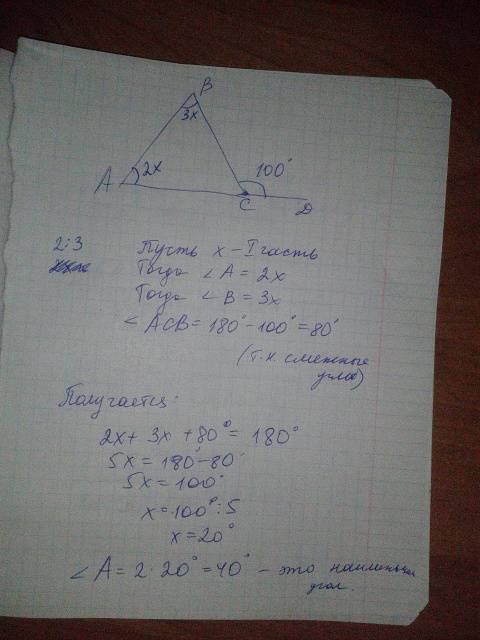 B
3x
A
2x
100°
C
D
2:3
Пусть x - I часть
Тогда ∠A = 2x
Тогда ∠B = 3x
∠ACB = 180° - 100° = 80°
(т.к смежные
углы)
Получается:
2x + 3x + 80° = 180°
5x = 180° - 80°
5x = 100°
x = 100° : 5
x = 20°
∠A = 2 · 20° = 40° - это наименьший
угол.